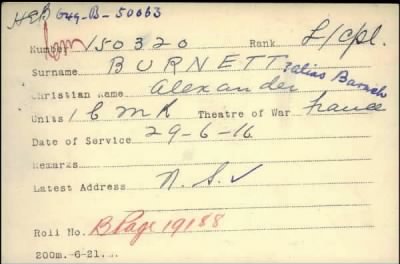 HEB 649-B-50063
Number 150320 Rank L/Cpl.
Surname BURNETT alias Baruch
Christian Name Alexander
Units 1 C M R Theatre of War France
Date of Service 29-6-16
Remarks
Latest Address N.S.
Roll No. B Page 19188
200m.-6-21.